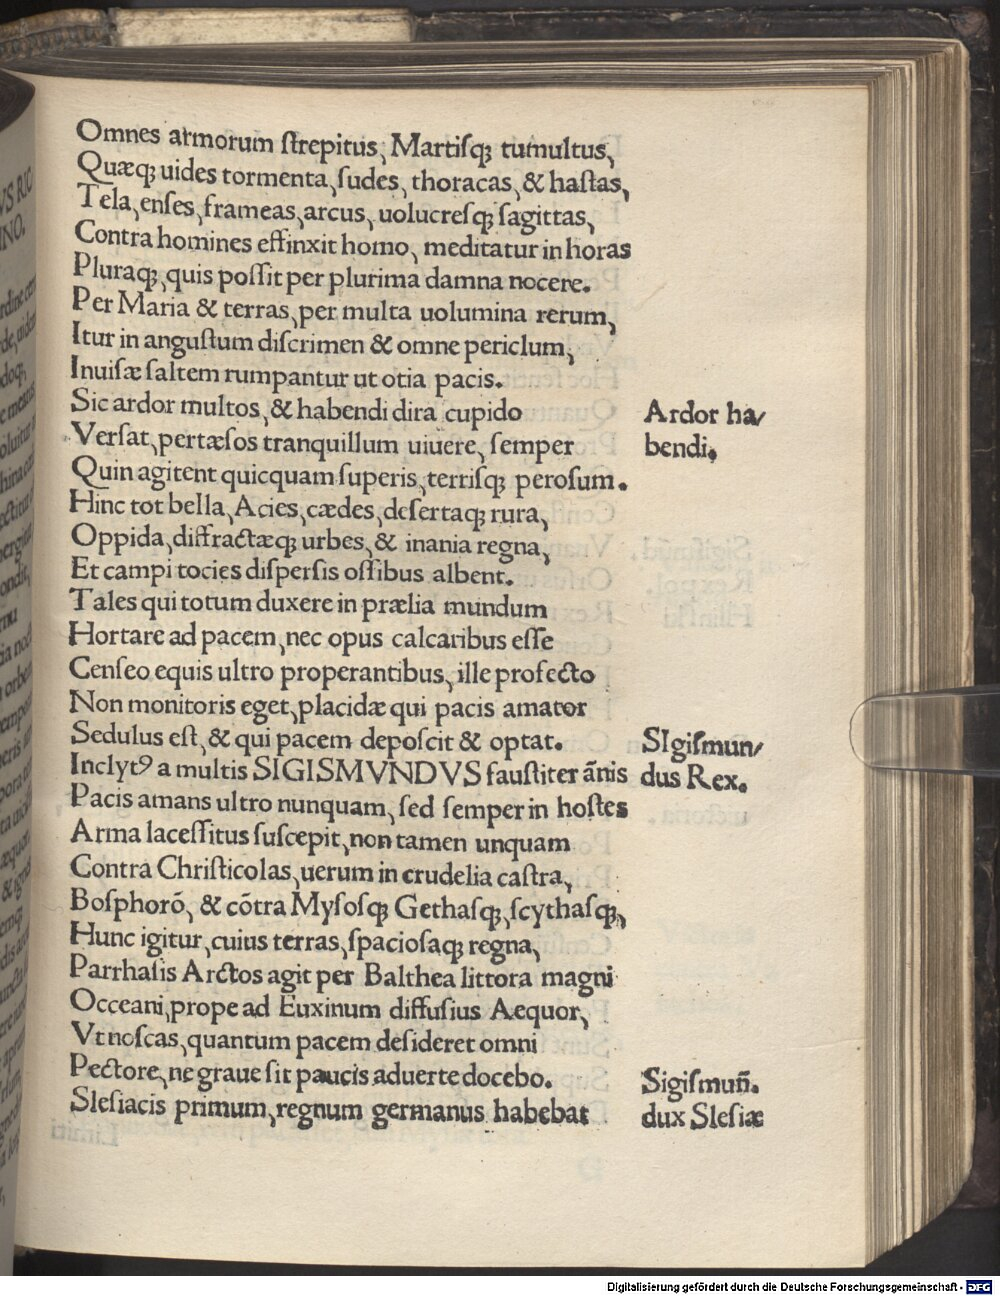 Omnes armorum ſtrepitus, Martiſqꝫ tumultus,
Quæqꝫ uides tormenta, ſudes, thoracas, & haſtas,
Tela, enſes, frameas, arcus, uolucreſqꝫ ſagittas,
Contra homines effinxit homo, meditatur in horas
Pluraqꝫ, quis poſſit per plurima damna nocere.
Per Maria & terras, per multa uolumina rerum,
Itur in anguſtum diſcrimen & omne periclum,
Inuiſæ ſaltem rumpantur ut otia pacis.
Sic ardor multos, & habendi dira cupido
Ardor ha/
Verſat, pertæſos tranquillum uiuere, ſemper
bendi.
Quin agitent quicquam ſuperis, terriſqꝫ peroſum.
Hinc tot bella, Acies, cædes, deſertaqꝫ rura,
Oppida, diffractæqꝫ urbes, & inania regna,
Et campi tocies diſperſis oſſibus albent.
Tales qui totum duxere in prælia mundum
Hortare ad pacem, nec opus calcaribus eſſe
Cenſeo equis ultro properantibus, ille profecto
Non monitoris eget, placidæ qui pacis amator
Sedulus eſt, & qui pacem depoſcit & optat.
SIgiſmun/
Inclytꝰ a multis SIGISMVNDVS fauſtiter ãnis
dus Rex.
Pacis amans ultro nunquam, ſed ſemper in hoſtes
Arma laceſſitus ſuſcepit, non tamen unquam
Contra Chriſticolas, uerum in crudelia caſtra,
Boſphorõ, & cõtra Myſoſqꝫ Gethaſqꝫ, ſcythaſqꝫ,
Hunc igitur, cuius terras, ſpacioſaqꝫ regna,
Parrhaſis Arctos agit per Balthea littora magni
Occeani, prope ad Euxinum diffuſius Aequor,
Vt noſcas, quantum pacem deſideret omni
Pectore, ne graue ſit paucis aduerte docebo.
Sigiſmuñ.
Sleſiacis primum, regnum germanus habebat
dux Sleſiæ
Digitalisierung gefördert durch die Deutsche Forschungsgemeinschaft - DFG